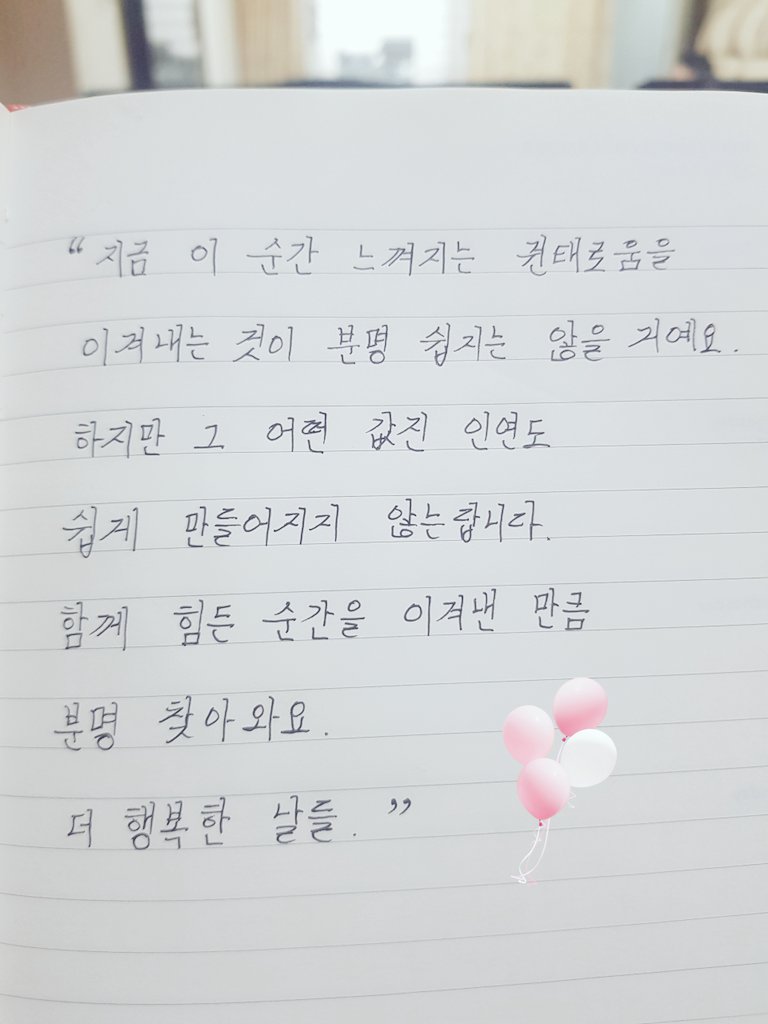 “지금 이 순간 느껴지는 권태로움을
이겨내는 것이 분명 쉽지는 않을 거예요.
하지만 그 어떤 값진 인연도
쉽게 만들어지지 않는랍니다.
함께 힘든 순간을 이겨낸 만큼
분명 찾아와요.
더 행복한 날들.”